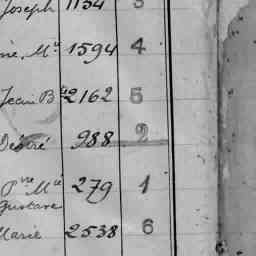 Joseph 1134 3
ne, Me 1594 4
Jean Bte 2162 5
Désiré 988 2
Pre Me 279 1
Gustave
Marie 2538 6